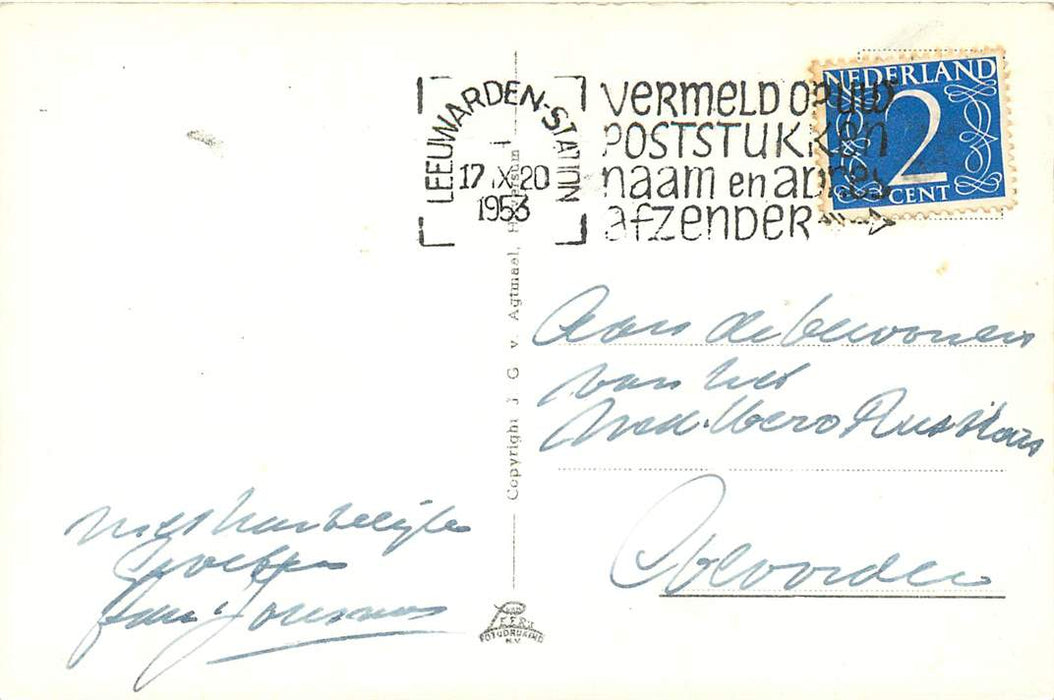 LEEUWARDEN-STATION
17 IX 20
1953
VERMELD OP UW
POSTSTUKKEN
naam en adres
afzender
NEDERLAND
2
CENT
Aan de bewoners
van het
Rusthuis
Coevorden
Met hartelijke
Groeten
Copyright J G v. Agtmaal, Hilversum
VAN
LEER'S
FOTODRUKIND
N.V.